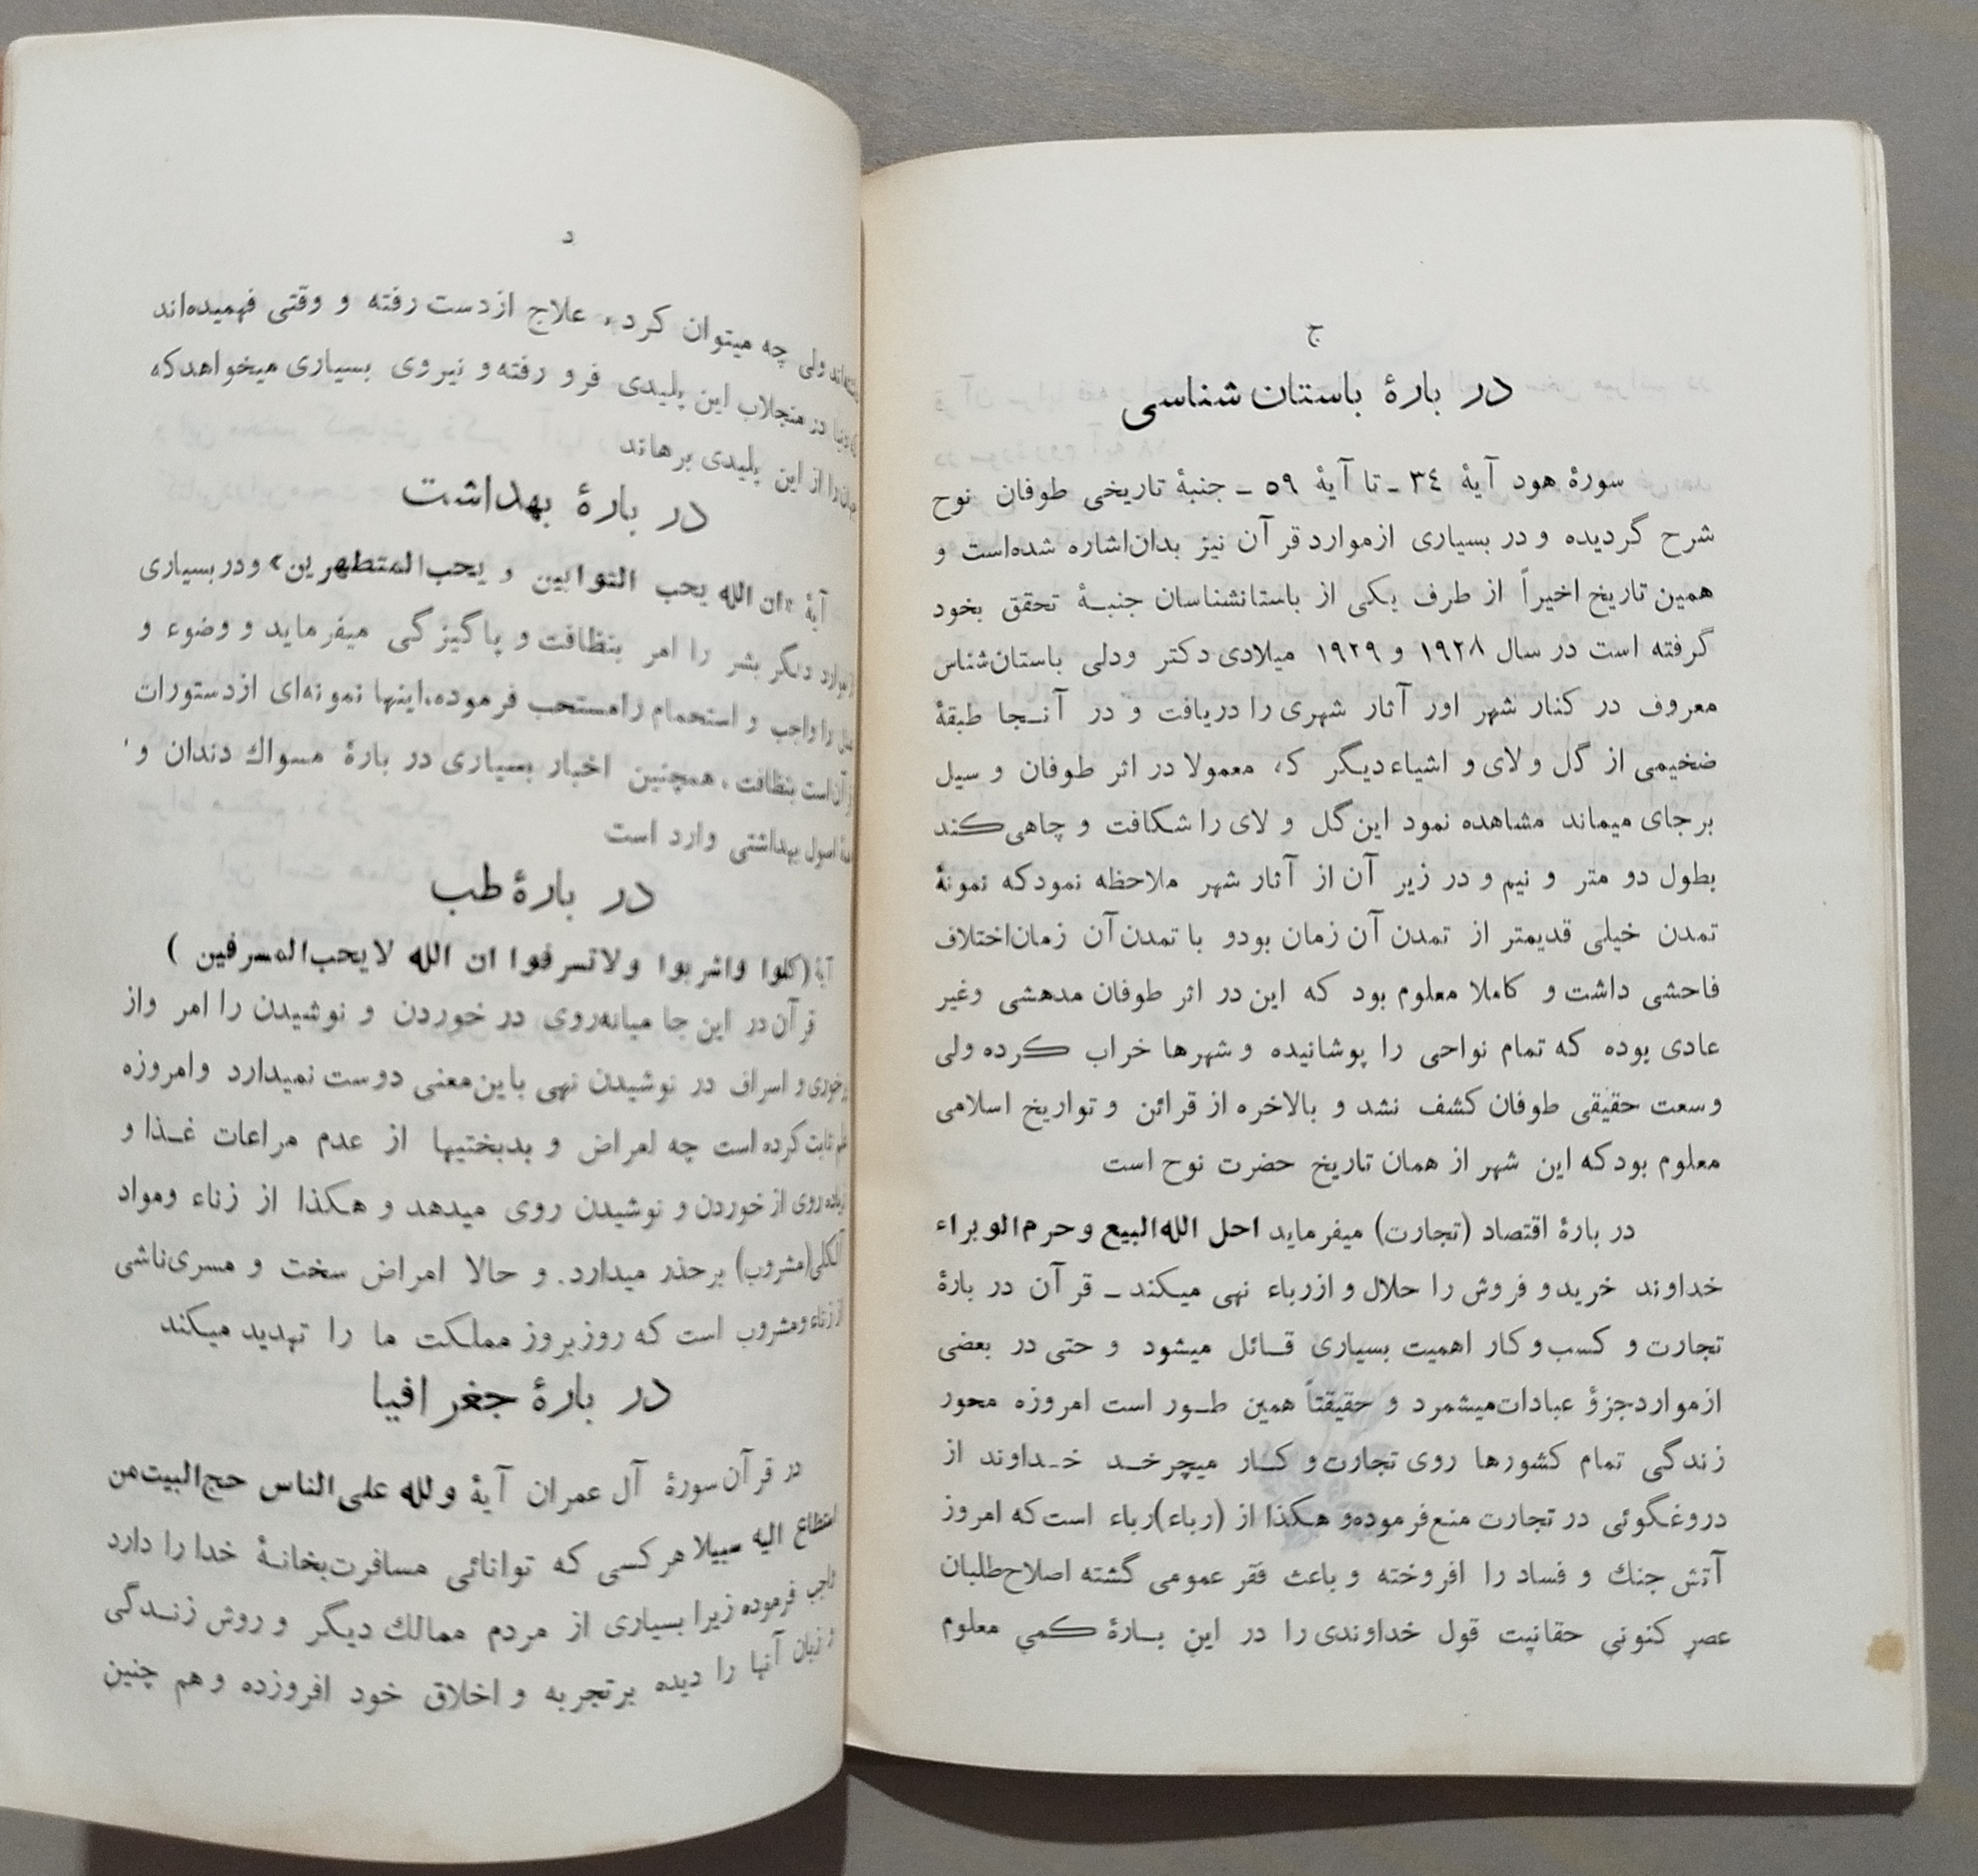 ج
در بارهٔ باستان شناسی
سورهٔ هود آیهٔ ٣٤ ـ تا آیهٔ ٥٩ ـ جنبهٔ تاریخی طوفان نوح
شرح گردیده و در بسیاری ازموارد قرآن نیز بدان‌اشاره شده‌است و
همین تاریخ اخیراً از طرف یکی از باستانشناسان جنبـهٔ تحقق بخود
گرفته است در سال ١٩٢٨ و ١٩٢٩ میلادی دکتر ودلی باستان‌شناس
معروف در کنار شهر اور آثار شهری را دریافت و در آنـجا طبقهٔ
ضخیمی از گل و لای و اشیاء دیـگر که معمولا در اثر طوفان و سیل
برجای میماند مشاهده نمود این گل و لای را شکافت و چاهی کند
بطول دو متر و نیم و در زیر آن از آثار شهر ملاحظه نمود که نمونهٔ
تمدن خیلی قدیمتر از تمدن آن زمان بودو با تمدن آن زمان‌اختلاف
فاحشی داشت و کاملا معلوم بود که این در اثر طوفان مدهشی وغیر
عادی بوده که تمام نواحی را پوشانیده و شهرها خراب کرده ولی
وسعت حقیقی طوفان کشف نشد و بالاخره از قرائن و تواریخ اسلامی
معلوم بود که این شهر از همان تاریخ حضرت نوح است
در بارهٔ اقتصاد (تجارت) میفرماید احل الله‌البیع و حرم‌الوبراء
خداوند خرید و فروش را حلال و از رباء نهی میـکند ـ قرآن در بارهٔ
تجارت و کسب و کار اهمیت بسیاری قـائل میشود و حتی در بعضی
ازموارد جزؤ عبادات‌میشمرد و حقیقتاً همین طـور است امروزه محور
زندگی تمام کشورها روی تجارت و کـار میچرخـد خـداوند از
دروغگوئی در تجارت منع‌فرموده‌و هکذا از (رباء)رباء است که امروز
آتش جنك و فساد را افروخته و باعث فقر عمومی گشته اصلاح‌طلبان
عصر کنونی حقانیت قول خداوندی را در این بـارهٔ کمی معلوم
د
ولی چه میتوان کرد، علاج ازدست رفته و وقتی فهمیده‌اند
در منجلاب این پلیدی فرو رفته و نیروی بسیاری میخواهد که
را از این پلیدی برهاند
در بارهٔ بهداشت
آیهٔ «ان الله یحب التوابین و یحب‌المتطهرین» و در بسیاری
دیگر بشر را امر بنظافت و پاگیزگی میفرماید و وضوء و
را واجب و استحمام را مستحب فرموده.اینها نمونه‌ای از دستورات
است بنظافت، همچنین اخبار بسیاری در بارهٔ مسواك دندان و
اصول بهداشتی وارد است
در بارهٔ طب
آیهٔ (کلوا واشربوا ولاتسرفوا ان الله لایحب‌المسرفین )
قرآن در این جا میانه‌روی در خوردن و نوشیدن را امر واز
و اسراف در نوشیدن نهی باین‌معنی دوست نمیدارد و امروزه
ثابت کرده است چه امراض و بدبختیها از عدم مراعات غـذا و
روی از خوردن و نوشیدن روی میدهد و هکذا از زناء ومواد
الکلی(مشروب) برحذر میدارد. و حالا امراض سخت و مسری ناشی
از زناء ومشروب است که روزبروز مملکت ما را تهدید میکند
در بارهٔ جغرافیا
در قرآن سورهٔ آل عمران آیهٔ ولله علی‌الناس حج‌البیت‌من
استطاع الیه سبیلا هر کسی که توانائی مسافرت‌بخانـهٔ خدا را دارد
واجب فرموده زیرا بسیاری از مردم ممالك دیگر و روش زنـدگی
و زبان آنها را دیده برتجربه و اخلاق خود افروزده و هم چنین